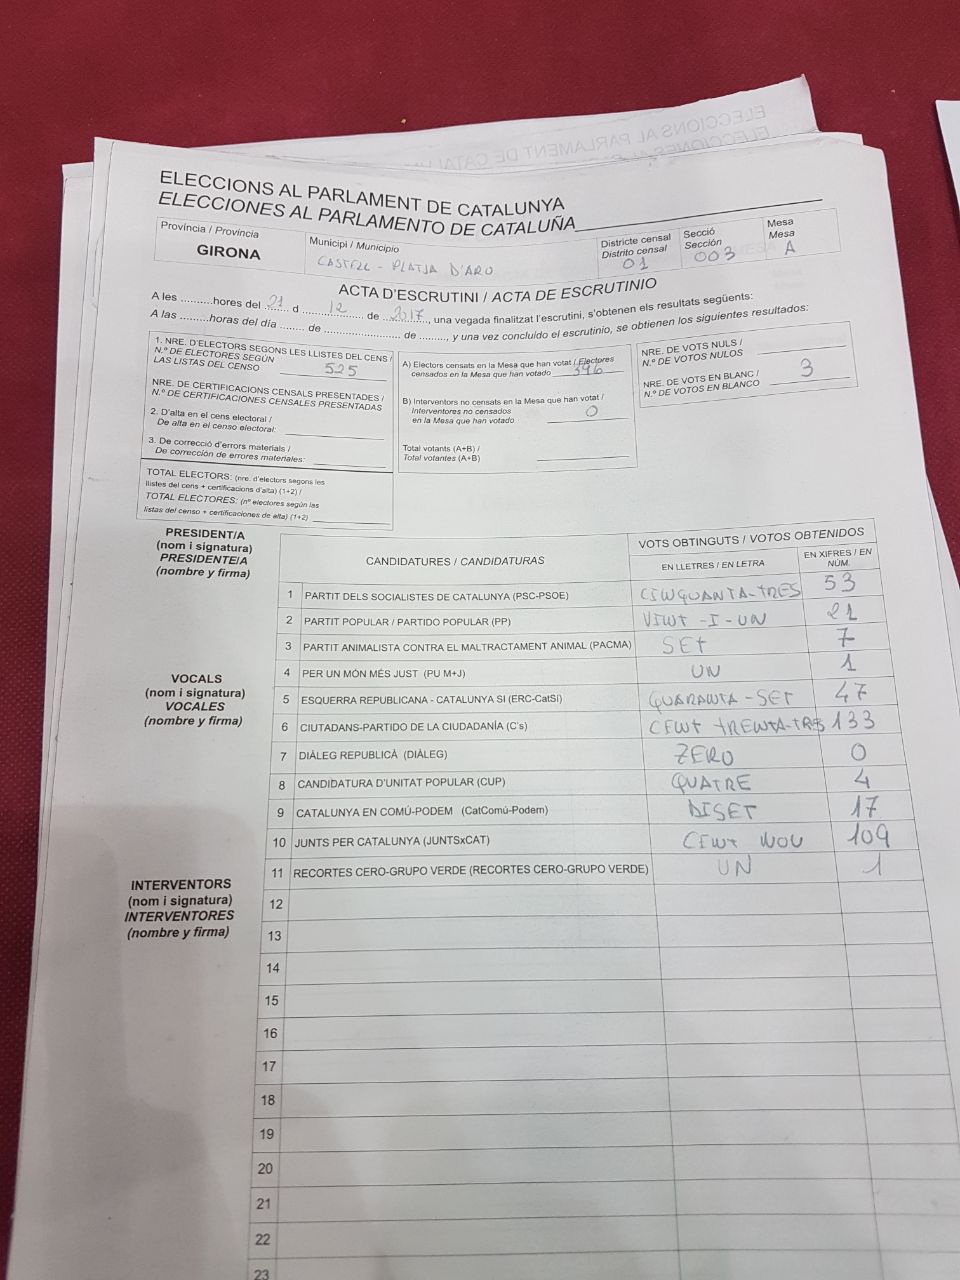 ELECCIONS AL PARLAMENT DE CATALUNYA
ELECCIONES AL PARLAMENTO DE CATALUÑA
Província / Provincia
GIRONA
Municipi / Municipio
CASTELL - PLATJA D'ARO
Districte censal
Distrito censal
01
Secció
Sección
003
Mesa
Mesa
A
ACTA D'ESCRUTINI / ACTA DE ESCRUTINIO
A les ..........hores del 21 d 12 de 2017, una vegada finalitzat l'escrutini, s'obtenen els resultats següents:
A las .........horas del día ........ de ........................ de ........., y una vez concluido el escrutinio, se obtienen los siguientes resultados:
1. NRE. D'ELECTORS SEGONS LES LLISTES DEL CENS /
N.º DE ELECTORES SEGÚN
LAS LISTAS DEL CENSO 525
NRE. DE CERTIFICACIONS CENSALS PRESENTADES /
N.º DE CERTIFICACIONES CENSALES PRESENTADAS
2. D'alta en el cens electoral /
De alta en el censo electoral:
3. De correcció d'errors materials /
De corrección de errores materiales:
TOTAL ELECTORS: (nre. d'electors segons les
llistes del cens + certificacions d'alta) (1+2) /
TOTAL ELECTORES: (nº electores según las
listas del censo + certificaciones de alta) (1+2)
A) Electors censats en la Mesa que han votat / Electores
censados en la Mesa que han votado 396
B) Interventors no censats en la Mesa que han votat /
Interventores no censados
en la Mesa que han votado 0
Total votants (A+B) /
Total votantes (A+B)
NRE. DE VOTS NULS /
N.º DE VOTOS NULOS
NRE. DE VOTS EN BLANC /
N.º DE VOTOS EN BLANCO 3
PRESIDENT/A
(nom i signatura)
PRESIDENTE/A
(nombre y firma)
VOCALS
(nom i signatura)
VOCALES
(nombre y firma)
INTERVENTORS
(nom i signatura)
INTERVENTORES
(nombre y firma)
CANDIDATURES / CANDIDATURAS
VOTS OBTINGUTS / VOTOS OBTENIDOS
EN LLETRES / EN LETRA
EN XIFRES / EN
NÚM.
1 PARTIT DELS SOCIALISTES DE CATALUNYA (PSC-PSOE) CINQUANTA-TRES 53
2 PARTIT POPULAR / PARTIDO POPULAR (PP) VINT-I-UN 21
3 PARTIT ANIMALISTA CONTRA EL MALTRACTAMENT ANIMAL (PACMA) SET 7
4 PER UN MÓN MÉS JUST (PU M+J) UN 1
5 ESQUERRA REPUBLICANA - CATALUNYA SI (ERC-CatSí) QUARANTA-SET 47
6 CIUTADANS-PARTIDO DE LA CIUDADANÍA (C's) CENT TRENTA-TRES 133
7 DIÀLEG REPUBLICÀ (DIÀLEG) ZERO 0
8 CANDIDATURA D'UNITAT POPULAR (CUP) QUATRE 4
9 CATALUNYA EN COMÚ-PODEM (CatComú-Podem) DISET 17
10 JUNTS PER CATALUNYA (JUNTSxCAT) CENT NOU 109
11 RECORTES CERO-GRUPO VERDE (RECORTES CERO-GRUPO VERDE) UN 1
12
13
14
15
16
17
18
19
20
21
22
23